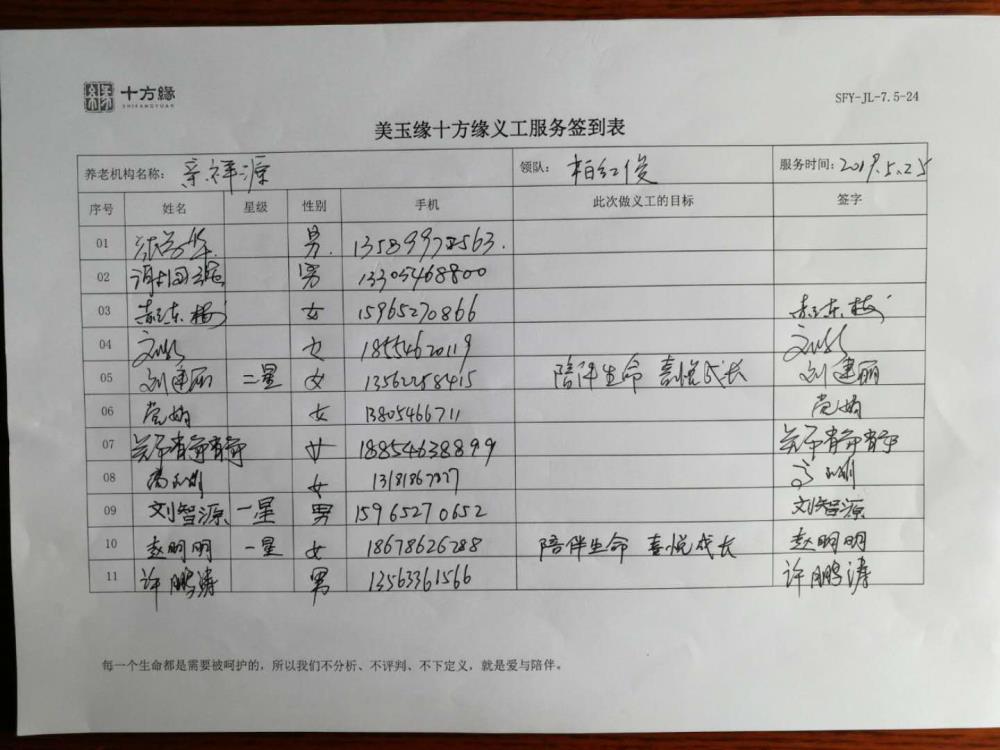 十方緣
SHIFANGYUAN
SFY-JL-7.5-24
美玉缘十方缘义工服务签到表
养老机构名称: 亲祥源 领队: 柏红俊 服务时间: 2019.5.25
序号 姓名 星级 性别 手机 此次做义工的目标 签字
01 男.
02 男 13305468800
03 郝东梅 女 15965270866 郝东梅
04 女 18554620119
05 刘建丽 二星 女 13562258415 陪伴生命 喜悦成长 刘建丽
06 党娟 女 13805466711 党娟
07 关静静 女 18854638899 关静静
08 女
09 刘智源 一星 男 15965270652 刘智源
10 赵明明 一星 女 18678626288 陪伴生命 喜悦成长 赵明明
11 许鹏涛 男 13563361566 许鹏涛
每一个生命都是需要被呵护的，所以我们不分析、不评判、不下定义，就是爱与陪伴。